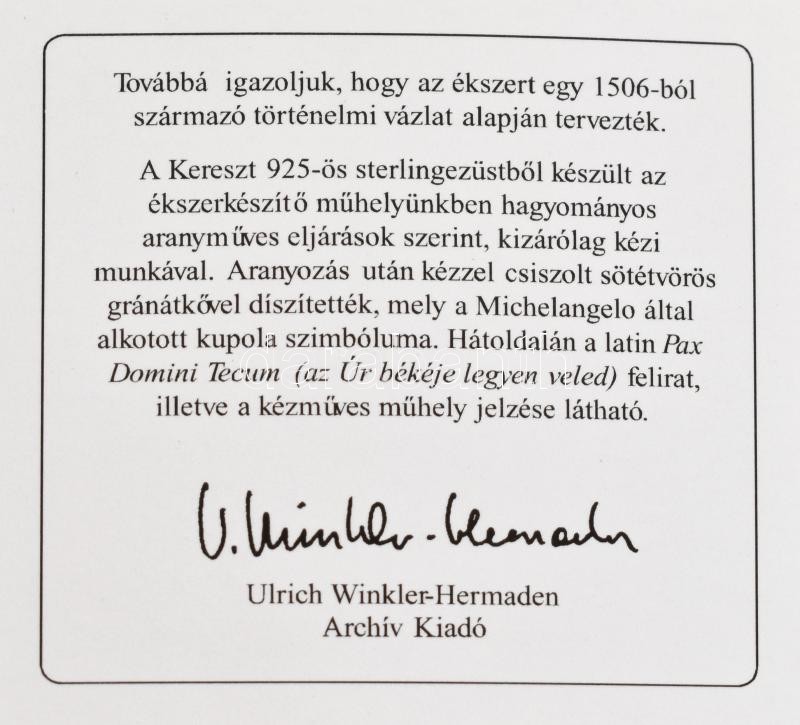 Továbbá igazoljuk, hogy az ékszert egy 1506-ból
származó történelmi vázlat alapján tervezték.
A Kereszt 925-ös sterlingezüstből készült az
ékszerkészítő műhelyünkben hagyományos
aranyműves eljárások szerint, kizárólag kézi
munkával. Aranyozás után kézzel csiszolt sötétvörös
gránátkővel díszítették, mely a Michelangelo által
alkotott kupola szimbóluma. Hátoldalán a latin Pax
Domini Tecum (az Úr békéje legyen veled) felirat,
illetve a kézműves műhely jelzése látható.
U. Winkler-Hermaden
Ulrich Winkler-Hermaden
Archív Kiadó